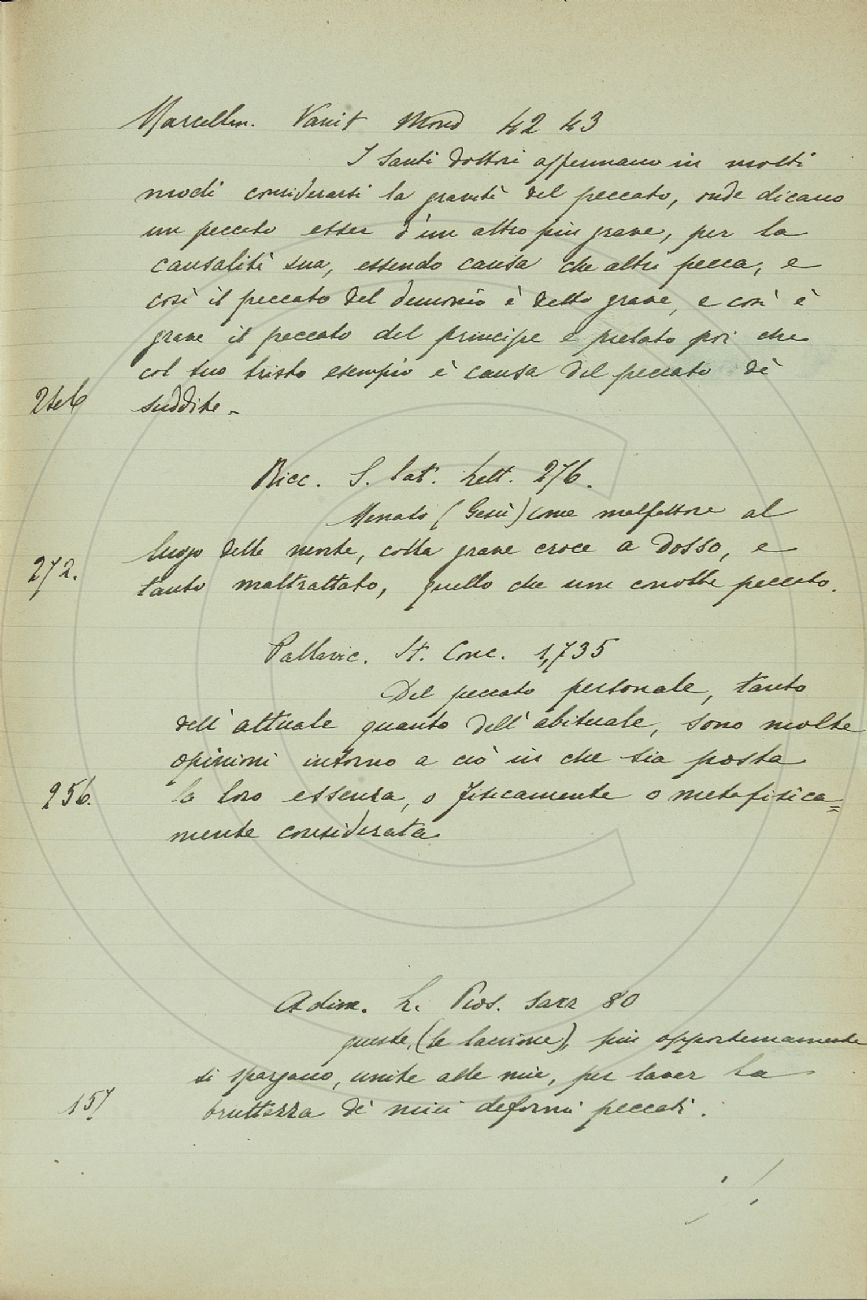 Marcellin. Vanit Mond 42 43
I santi dottori affermano in molti
modi considerarsi la gravità del peccato, onde dicano
un peccato esser d'un altro più grave, per la
causalità sua, essendo causa che altri pecca, e
così il peccato del demonio è detto grave, e così è
grave il peccato del principe e prelato poi che
col suo tristo esempio è causa del peccato dè
sudditi.
Ricc. S. lat. Lett. 276.
Menato (Gesù) come malfattore al
luogo della morte, colla grave croce a dosso, e
272.
tanto maltrattato, quello che non conobbe peccato.
Pallavic. St. Conc. 1,735
Del peccato personale, tanto
dell'attuale quanto dell'abituale, sono molte
opinioni intorno a ciò in che sia posta
256.
la loro essenza, o fisicamente o metafisica=
mente considerata
Adim. L. Pros. Sacr 80
queste, (le lacrime), più opportunamente
si spargano, unite alle mie, per lavar la
157
bruttezza dè miei deformi peccati.